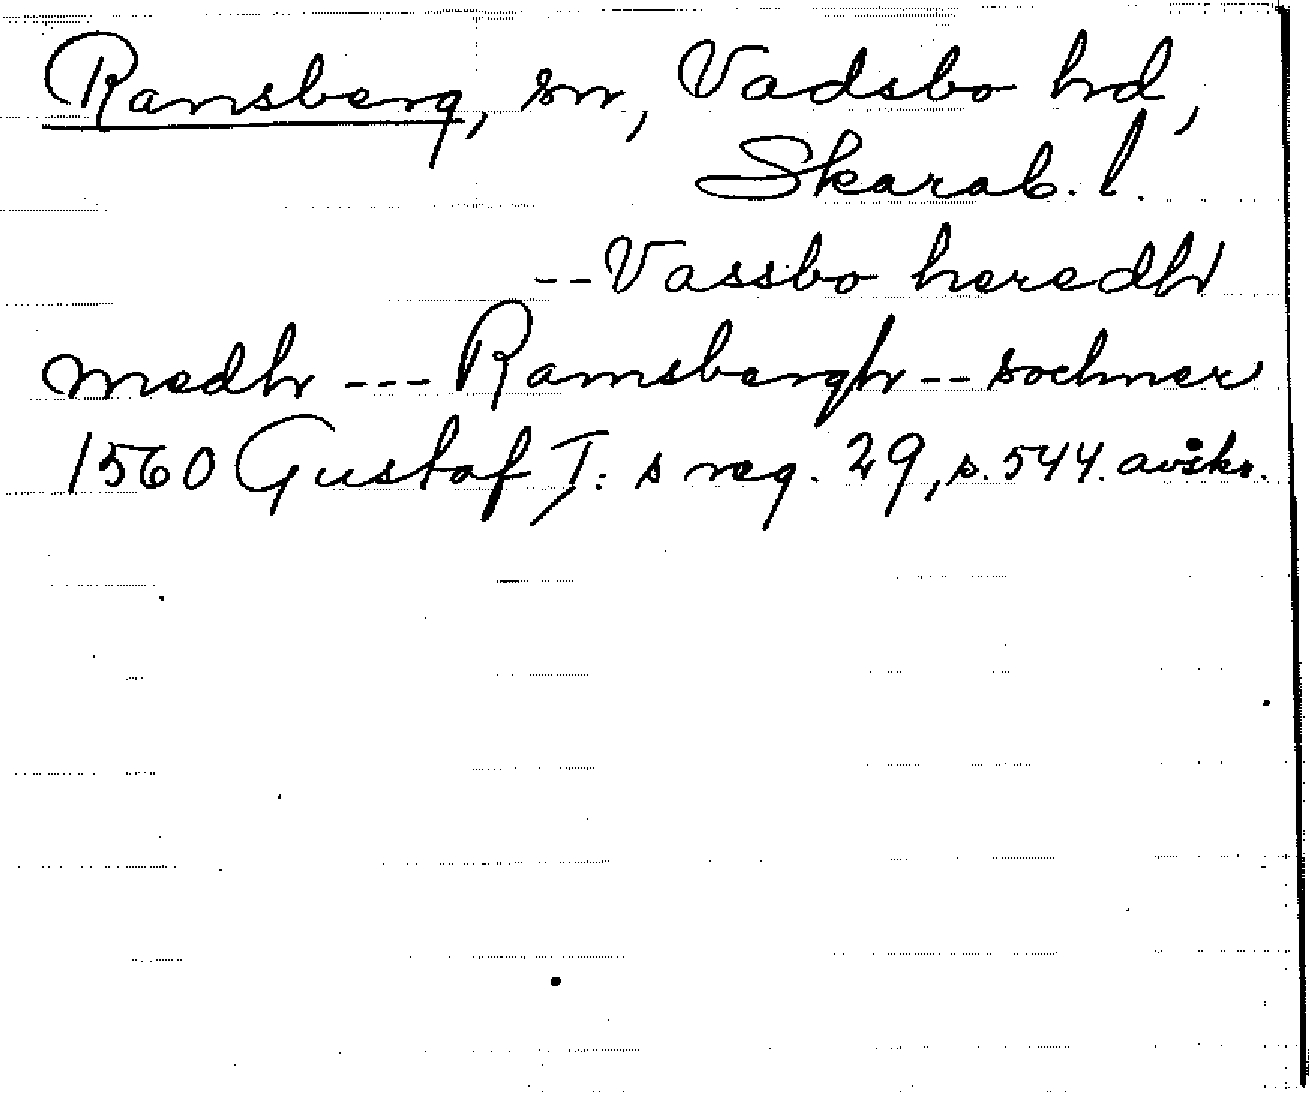 Ramsberg, sn, Vadsbo hd,
Skarab. l.
--Vassbo heredh
medh --- Ramsbergh -- sochner
1560 Gustaf I: s reg. 29, s. 544. avskr.